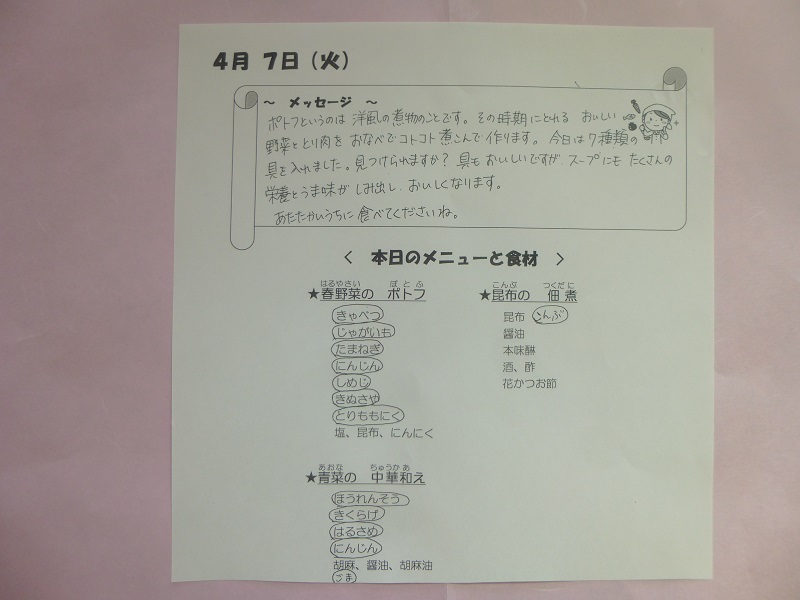 4月 7日(火)
～ メッセージ ～
ポトフというのは 洋風の煮物のことです。その時期にとれる おいしい
野菜ととり肉を おなべでコトコト煮こんで作ります。今日は7種類の
具を入れました。見つけられますか？具もおいしいですが、スープにも たくさんの
栄養とうま味が しみ出し、おいしくなります。
あたたかいうちに 食べてくださいね。
＜ 本日のメニューと食材 ＞
はるやさい ぽとふ
★春野菜の ポトフ
きゃべつ
じゃがいも
たまねぎ
にんじん
しめじ
きぬさや
とりももにく
塩、昆布、にんにく
こんぶ つくだに
★昆布の 佃煮
昆布 こんぶ
醤油
本味醂
酒、酢
花かつお節
あおな ちゅうかあ
★青菜の 中華和え
ほうれんそう
きくらげ
はるさめ
にんじん
胡麻、醤油、胡麻油
ごま